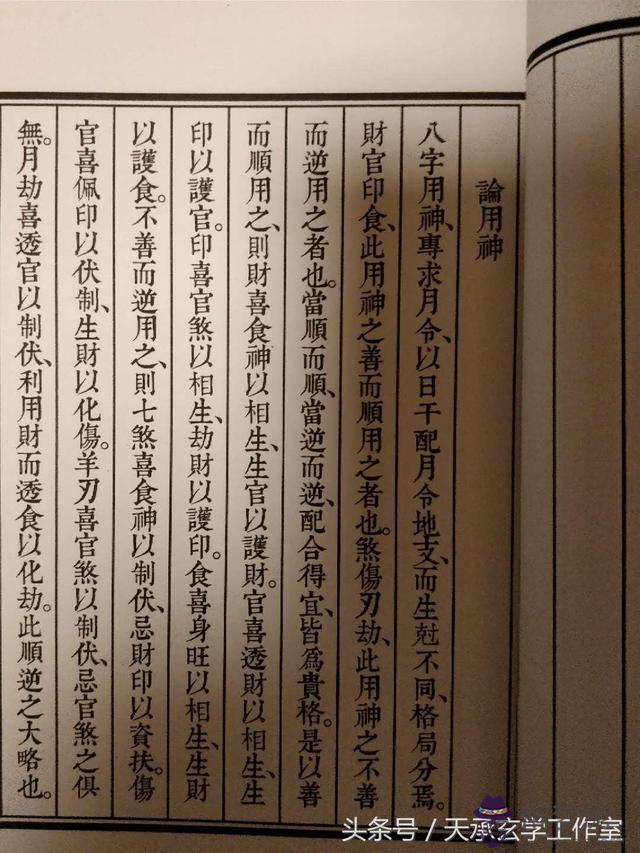 論用神
八字用神、專求月令、以日干配月令地支、而生尅不同、格局分焉。
財官印食、此用神之善而順用之者也。煞傷刃劫、此用神之不善
而逆用之者也。當順而順、當逆而逆、配合得宜、皆爲貴格。是以善
而順用之、則財喜食神以相生、生官以護財。官喜透財以相生、生
印以護官。印喜官煞以相生、劫財以護印。食喜身旺以相生、生財
以護食。不善而逆用之、則七煞喜食神以制伏、忌財印以資扶。傷
官喜佩印以伏制、生財以化傷。羊刃喜官煞以制伏、忌官煞之俱
無。月劫喜透官以制伏、利用財而透食以化劫。此順逆之大略也。
头条号/天承玄学工作室